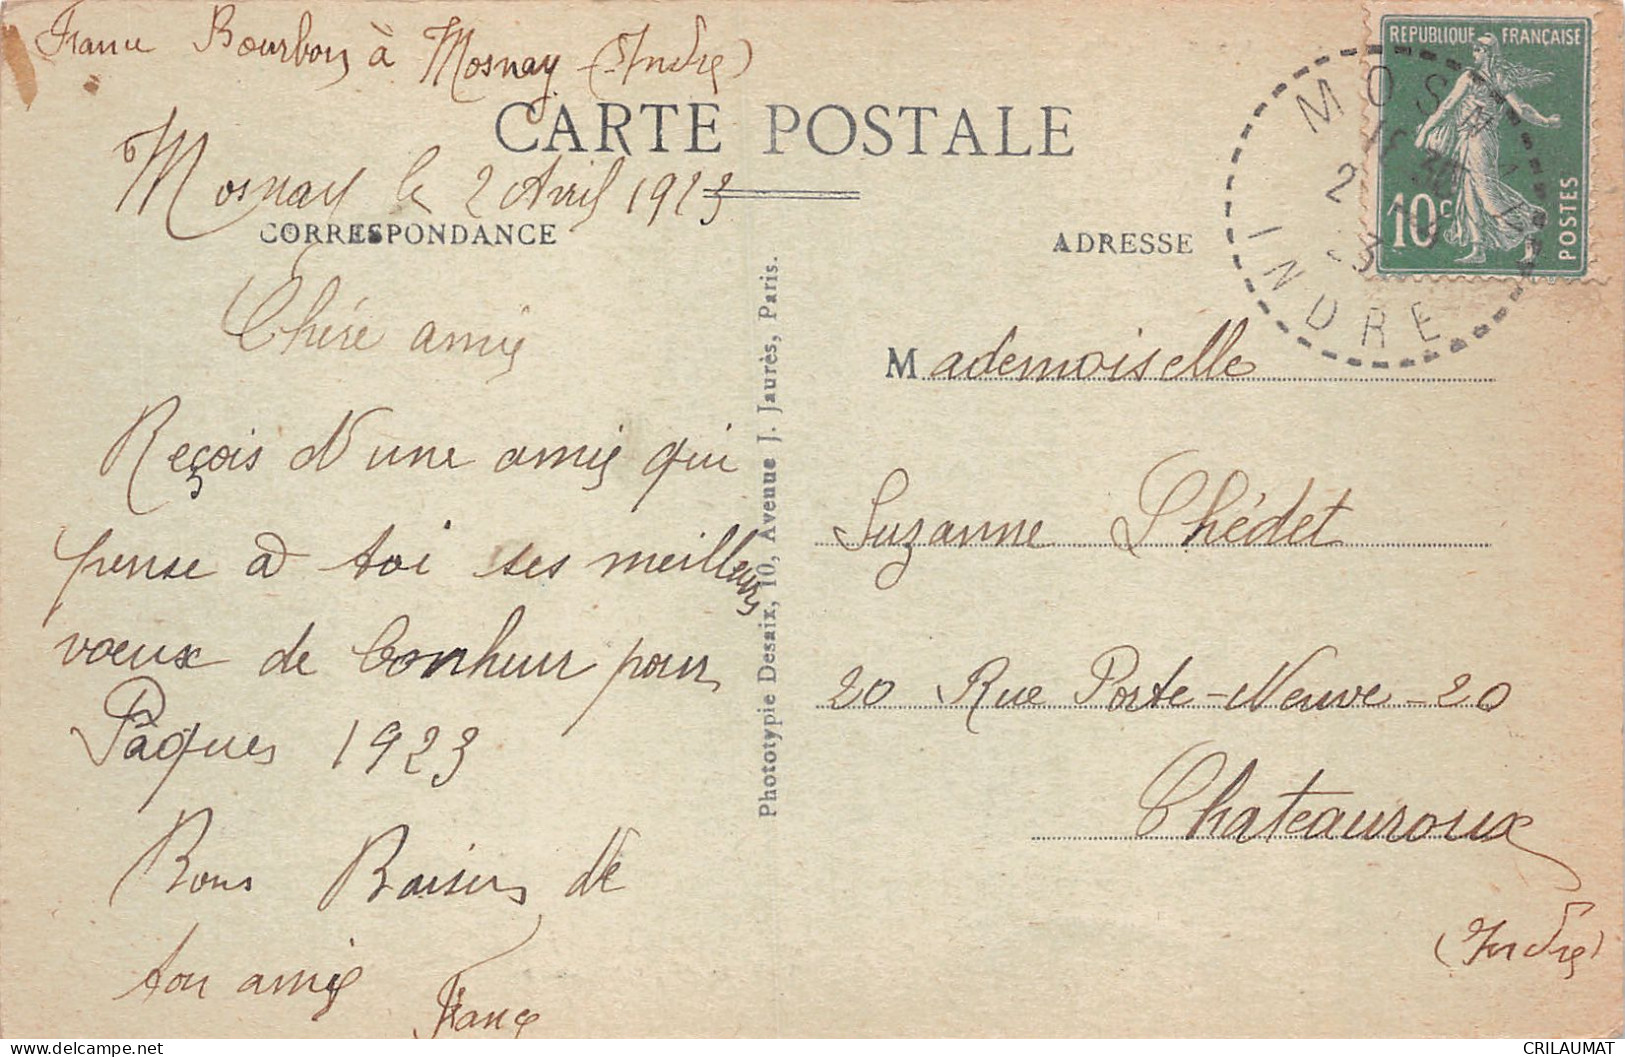 France Bourbon à Mosnay (Indre)
CARTE POSTALE
Mosnay le 2 Avril 1923
CORRESPONDANCE
Chère amie
Reçois d'une amie qui
pense à toi ses meilleurs
voeux de bonheur pour
Pâques 1923
Bons Baisers de
ton amie
France
Phototypie Desaix, 10, Avenue J. Jaurès, Paris.
ADRESSE
Mademoiselle
Suzanne Thédet
20 Rue Porte-Neuve-20
Chateauroux
(Indre)
REPUBLIQUE FRANÇAISE
10c
POSTES
MOSNAY
2
23
INDRE
www.delcampe.net
CRILAUMAT